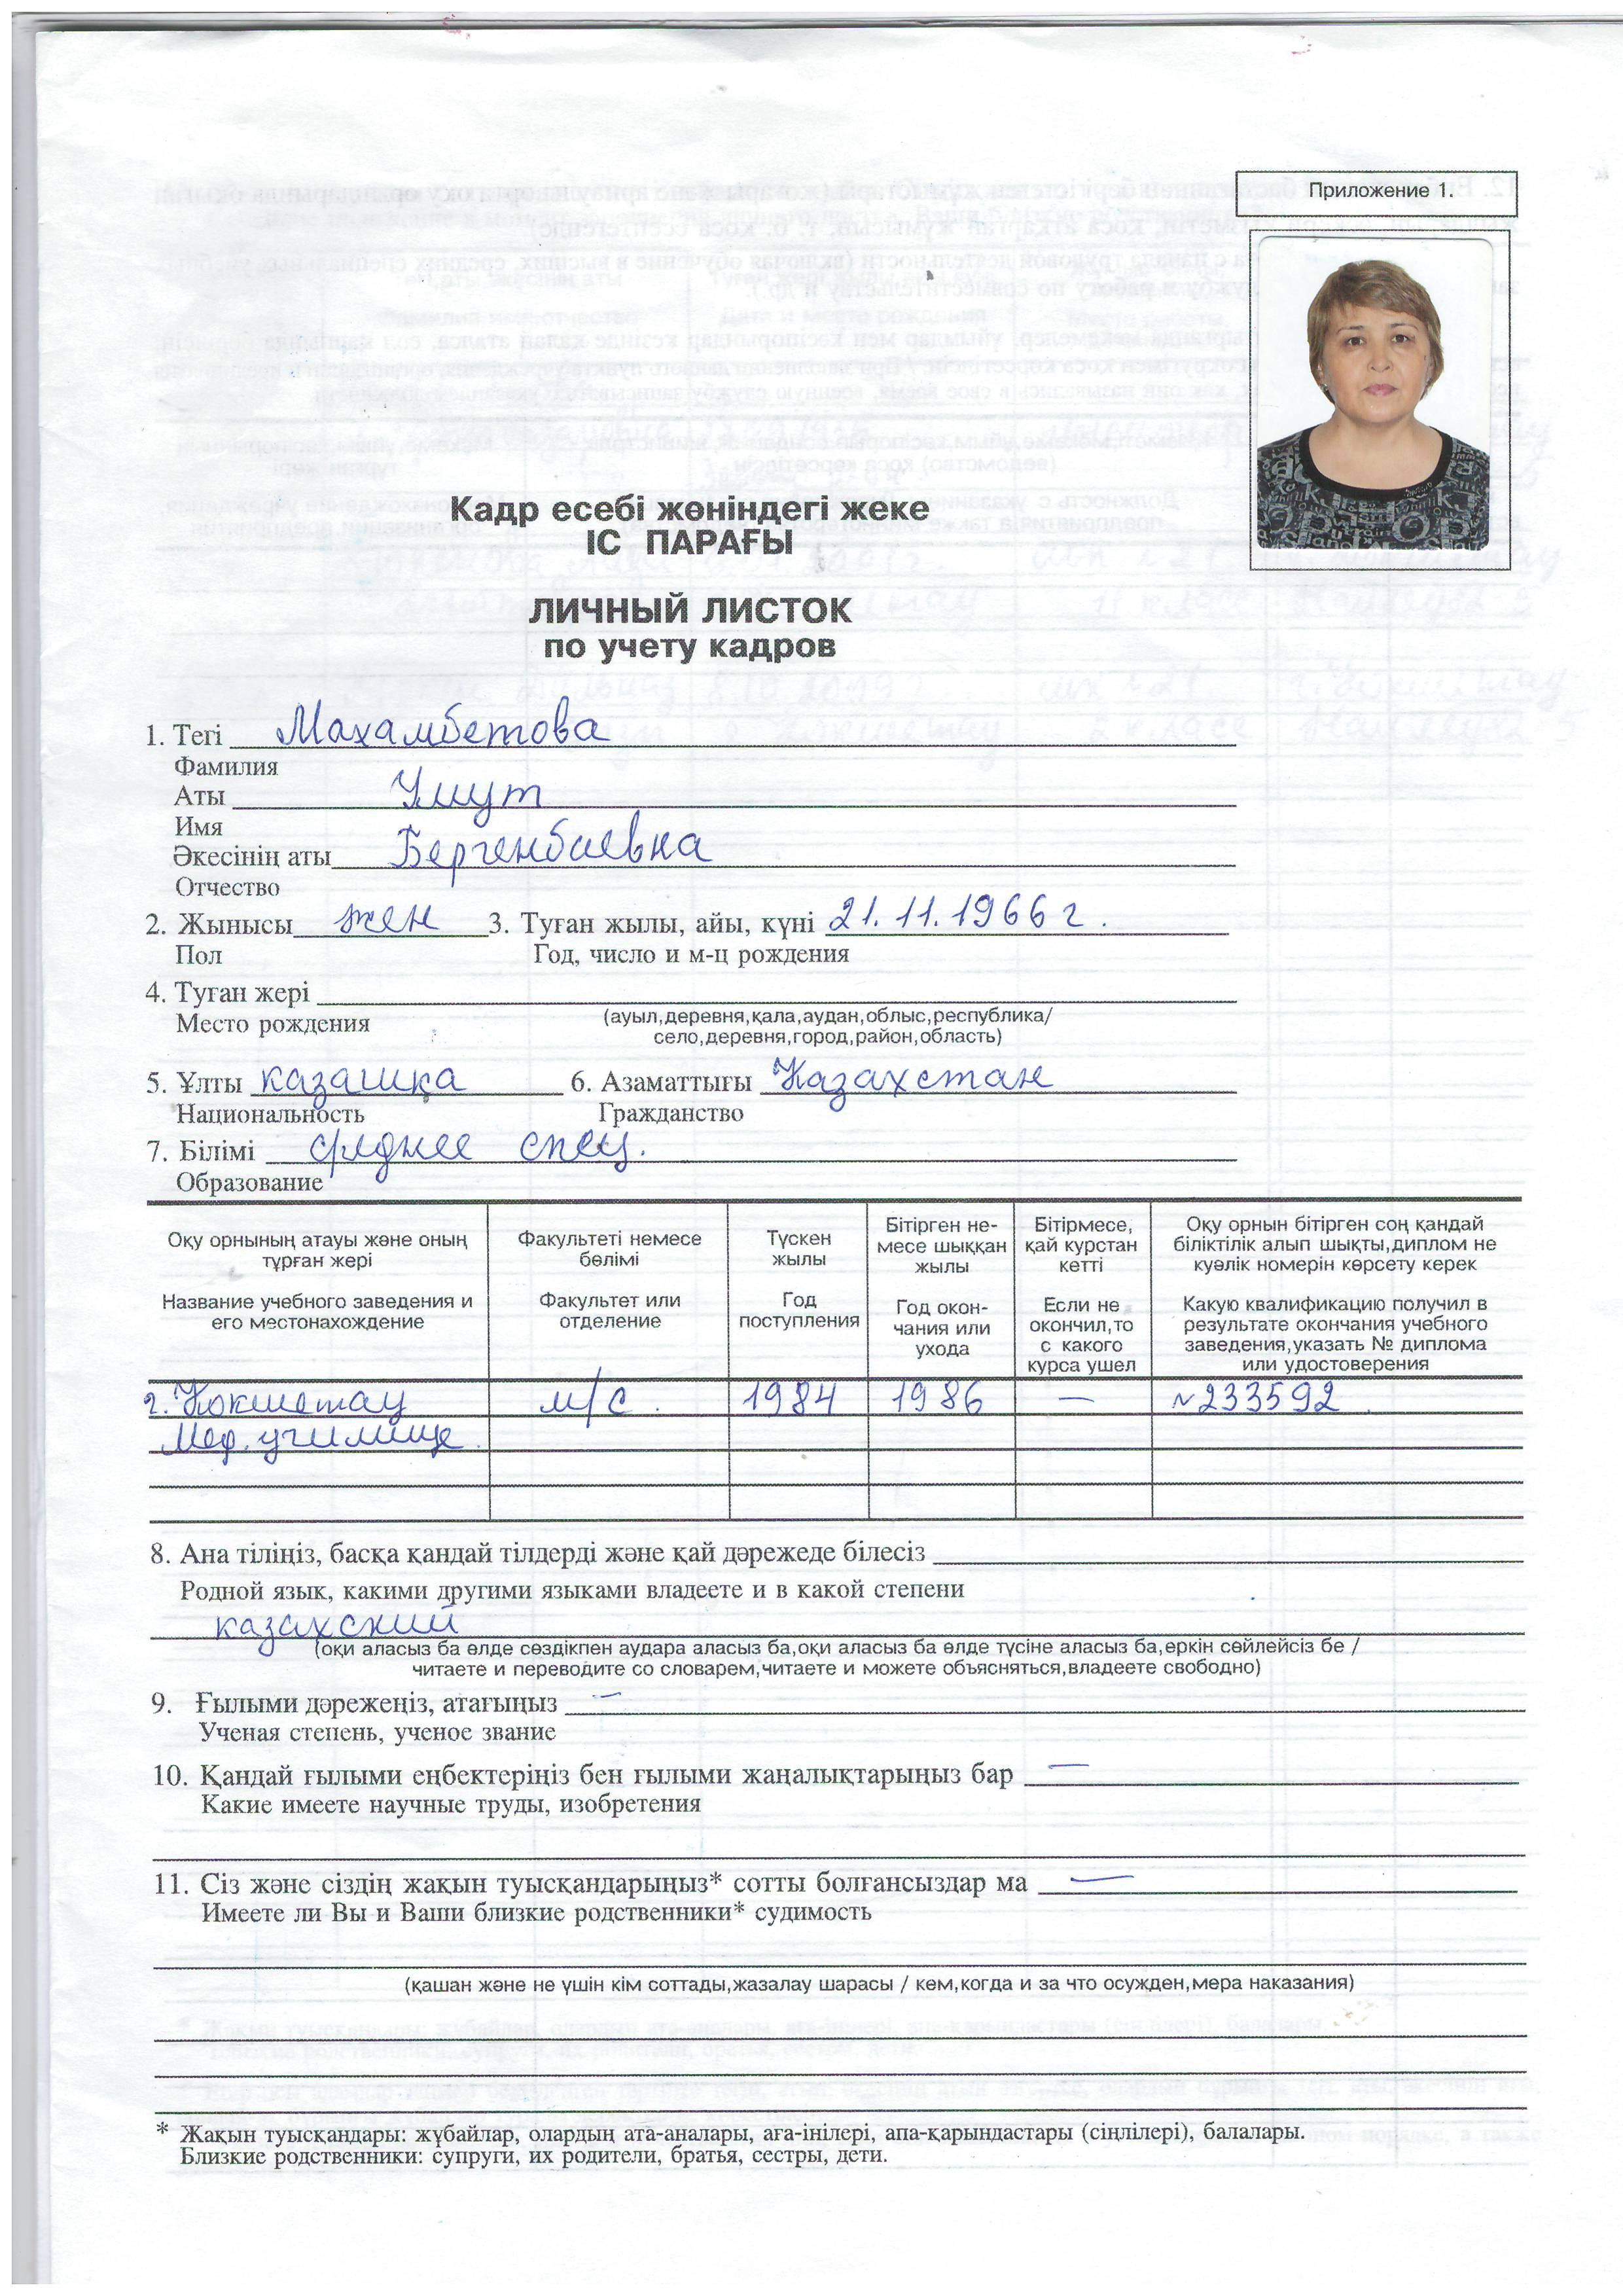 Приложение 1.
Кадр есебі жөніндегі жеке
ІС ПАРАҒЫ
ЛИЧНЫЙ ЛИСТОК
по учету кадров
1. Тегі Махамбетова
Фамилия
Аты Умут
Имя
Әкесінің аты Бергенбаевна
Отчество
2. Жынысы жен 3. Туған жылы, айы, күні 21.11.1966 г.
Пол Год, число и м-ц рождения
4. Туған жері
Место рождения (ауыл,деревня,қала,аудан,облыс,республика/
село,деревня,город,район,область)
5. Ұлты казашка 6. Азаматтығы Казахстан
Национальность Гражданство
7. Білімі среднее спец.
Образование
Оқу орнының атауы және оның тұрған жері
Название учебного заведения и его местонахождение
Факультеті немесе бөлімі
Факультет или отделение
Түскен жылы
Год поступления
Бітірген не-
месе шыққан
жылы
Год окон-
чания или
ухода
Бітірмесе,
қай курстан
кетті
Если не
окончил,то
с какого
курса ушел
Оқу орнын бітірген соң қандай
біліктілік алып шықты,диплом не
куәлік номерін көрсету керек
Какую квалификацию получил в
результате окончания учебного
заведения,указать № диплома
или удостоверения
г. Кокшетау м/с. 1984 1986 — №233592.
Мед. училище.
8. Ана тіліңіз, басқа қандай тілдерді және қай дәрежеде білесіз
Родной язык, какими другими языками владеете и в какой степени
казахский
(оқи аласыз ба өлде сөздікпен аудара аласыз ба,оқи аласыз ба өлде түсіне аласыз ба,еркін сөйлейсіз бе /
читаете и переводите со словарем,читаете и можете объясняться,владеете свободно)
9. Ғылыми дәрежеңіз, атағыңыз —
Ученая степень, ученое звание
10. Қандай ғылыми еңбектеріңіз бен ғылыми жаңалықтарыңыз бар —
Какие имеете научные труды, изобретения
11. Сіз және сіздің жақын туысқандарыңыз* сотты болғансыздар ма —
Имеете ли Вы и Ваши близкие родственники* судимость
(қашан және не үшін кім соттады,жазалау шарасы / кем,когда и за что осужден,мера наказания)
* Жақын туысқандары: жұбайлар, олардың ата-аналары, аға-інілері, апа-қарындастары (сіңлілері), балалары.
Близкие родственники: супруги, их родители, братья, сестры, дети.